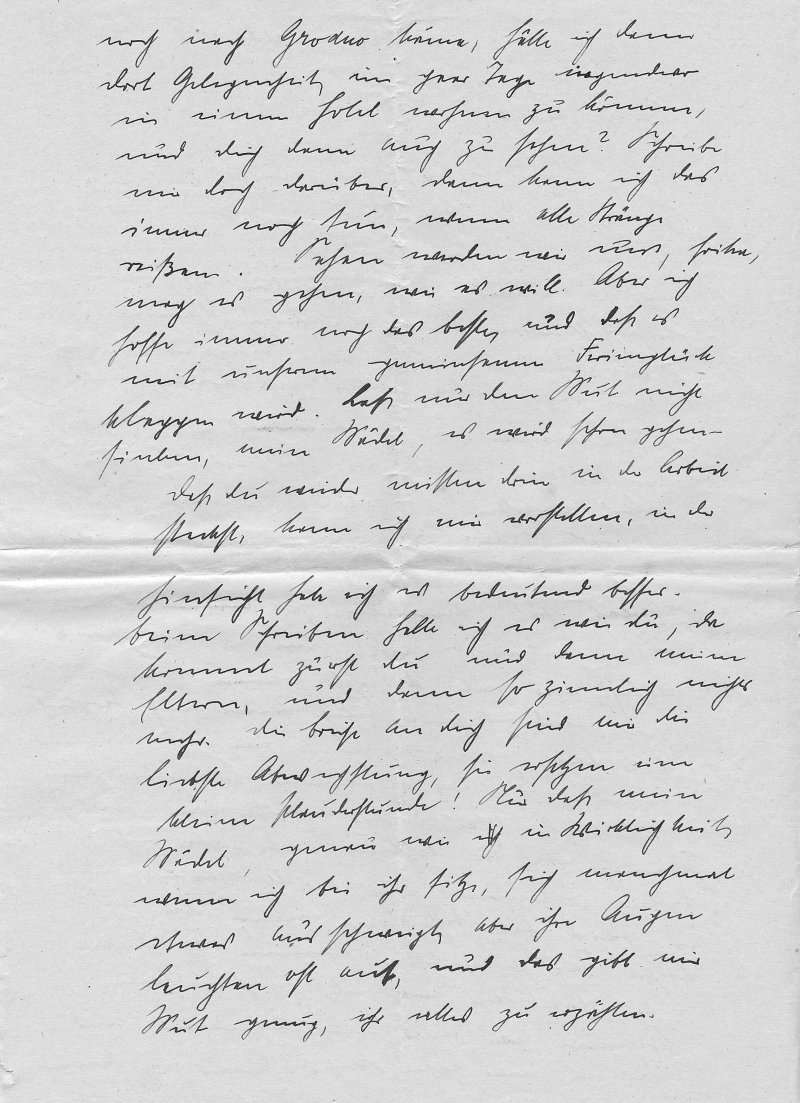 noch nach Grodno käme, hätte ich denn
dort Gelegenheit, ein paar Tage irgendwo
in einem Hotel wohnen zu können,
und dich dann auch zu sehen? Schreibe
mir doch darüber, denn kann ich das
immer noch tun, wenn alle Stränge
reißen. Sehen werden wir uns,
mag es gehen, wie es will. Aber ich
hoffe immer noch das beste, und daß es
mit unserem gemeinsamen Ferienglück
klappen wird. Laß nur den Mut nicht
sinken, mein Mädel, es wird schon gehen–
Daß du wieder mitten drin in der Arbeit
steckst, kann ich mir vorstellen, in der
Hinsicht habe ich es bedeutend besser.
beim Schreiben halte ich es wie du, da
kommst zuerst du und dann meine
Eltern, und dann so ziemlich nichts
mehr. Die briefe an dich sind mir die
liebste Abwechslung, sie ersetzen eine
kleine Plauderstunde! Nur daß mein
Mädel, genau wie in Wirklichkeit,
wenn ich bei ihr sitze, sich manchmal
etwas ausschweigt, aber ihre Augen
leuchten oft auf, und das gibt mir
Mut genug, ihr alles zu erzählen.